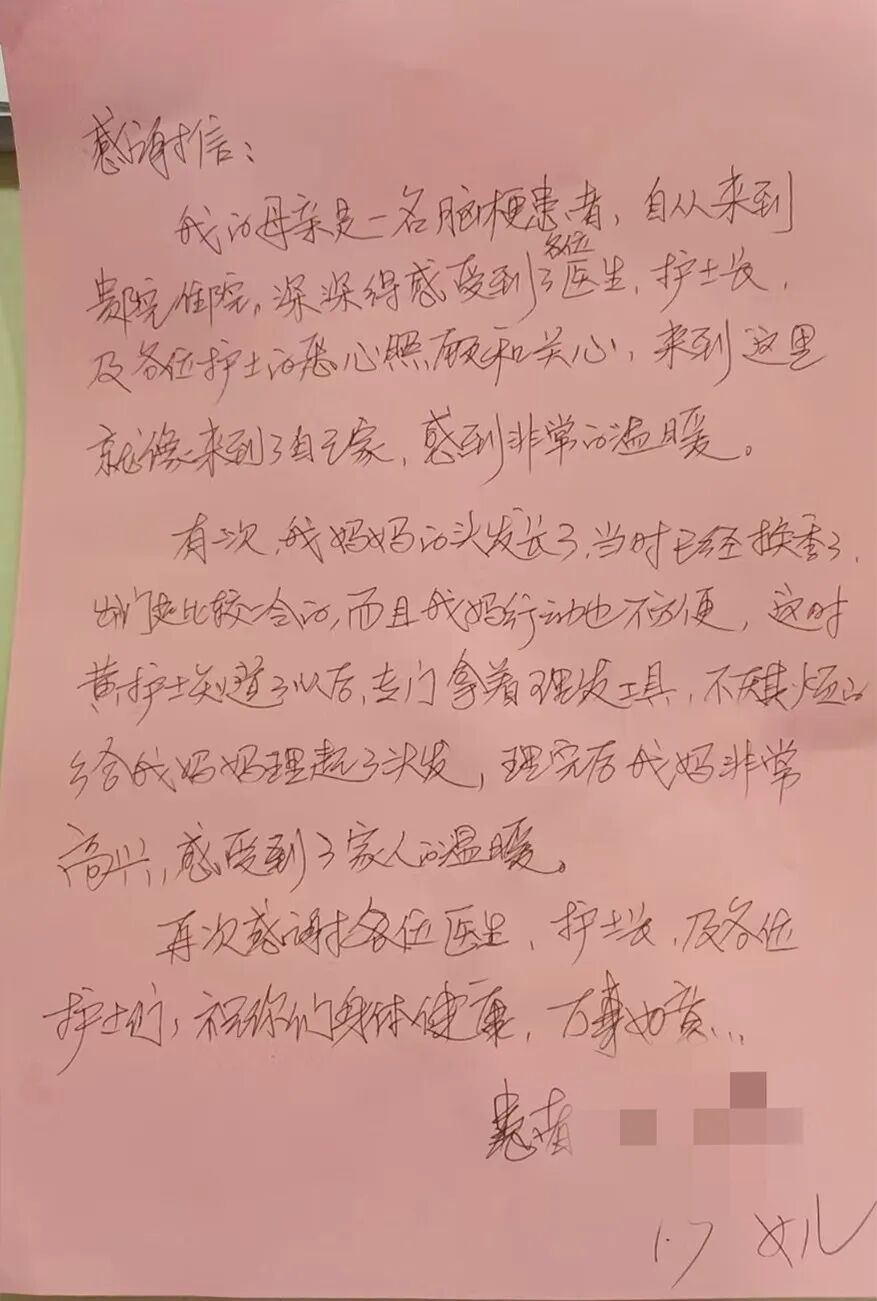 感谢信：
我的母亲是一名脑梗患者，自从来到
贵院住院，深深得感受到了各位医生，护士长，
及各位护士的悉心照顾和关心，来到这里
就像来到了自己家，感到非常的温暖。
有一次，我妈妈的头发长了，当时已经换季了，
出门是比较冷的，而且我妈行动也不方便，这时
黄护士知道了以后，专门拿着理发工具，不厌其烦的
给我妈妈理起了头发，理完后我妈非常
高兴，感受到了家人的温暖。
再次感谢各位医生，护士长，及各位
护士们，祝你们身体健康，万事如意...
患者
1.7 女儿